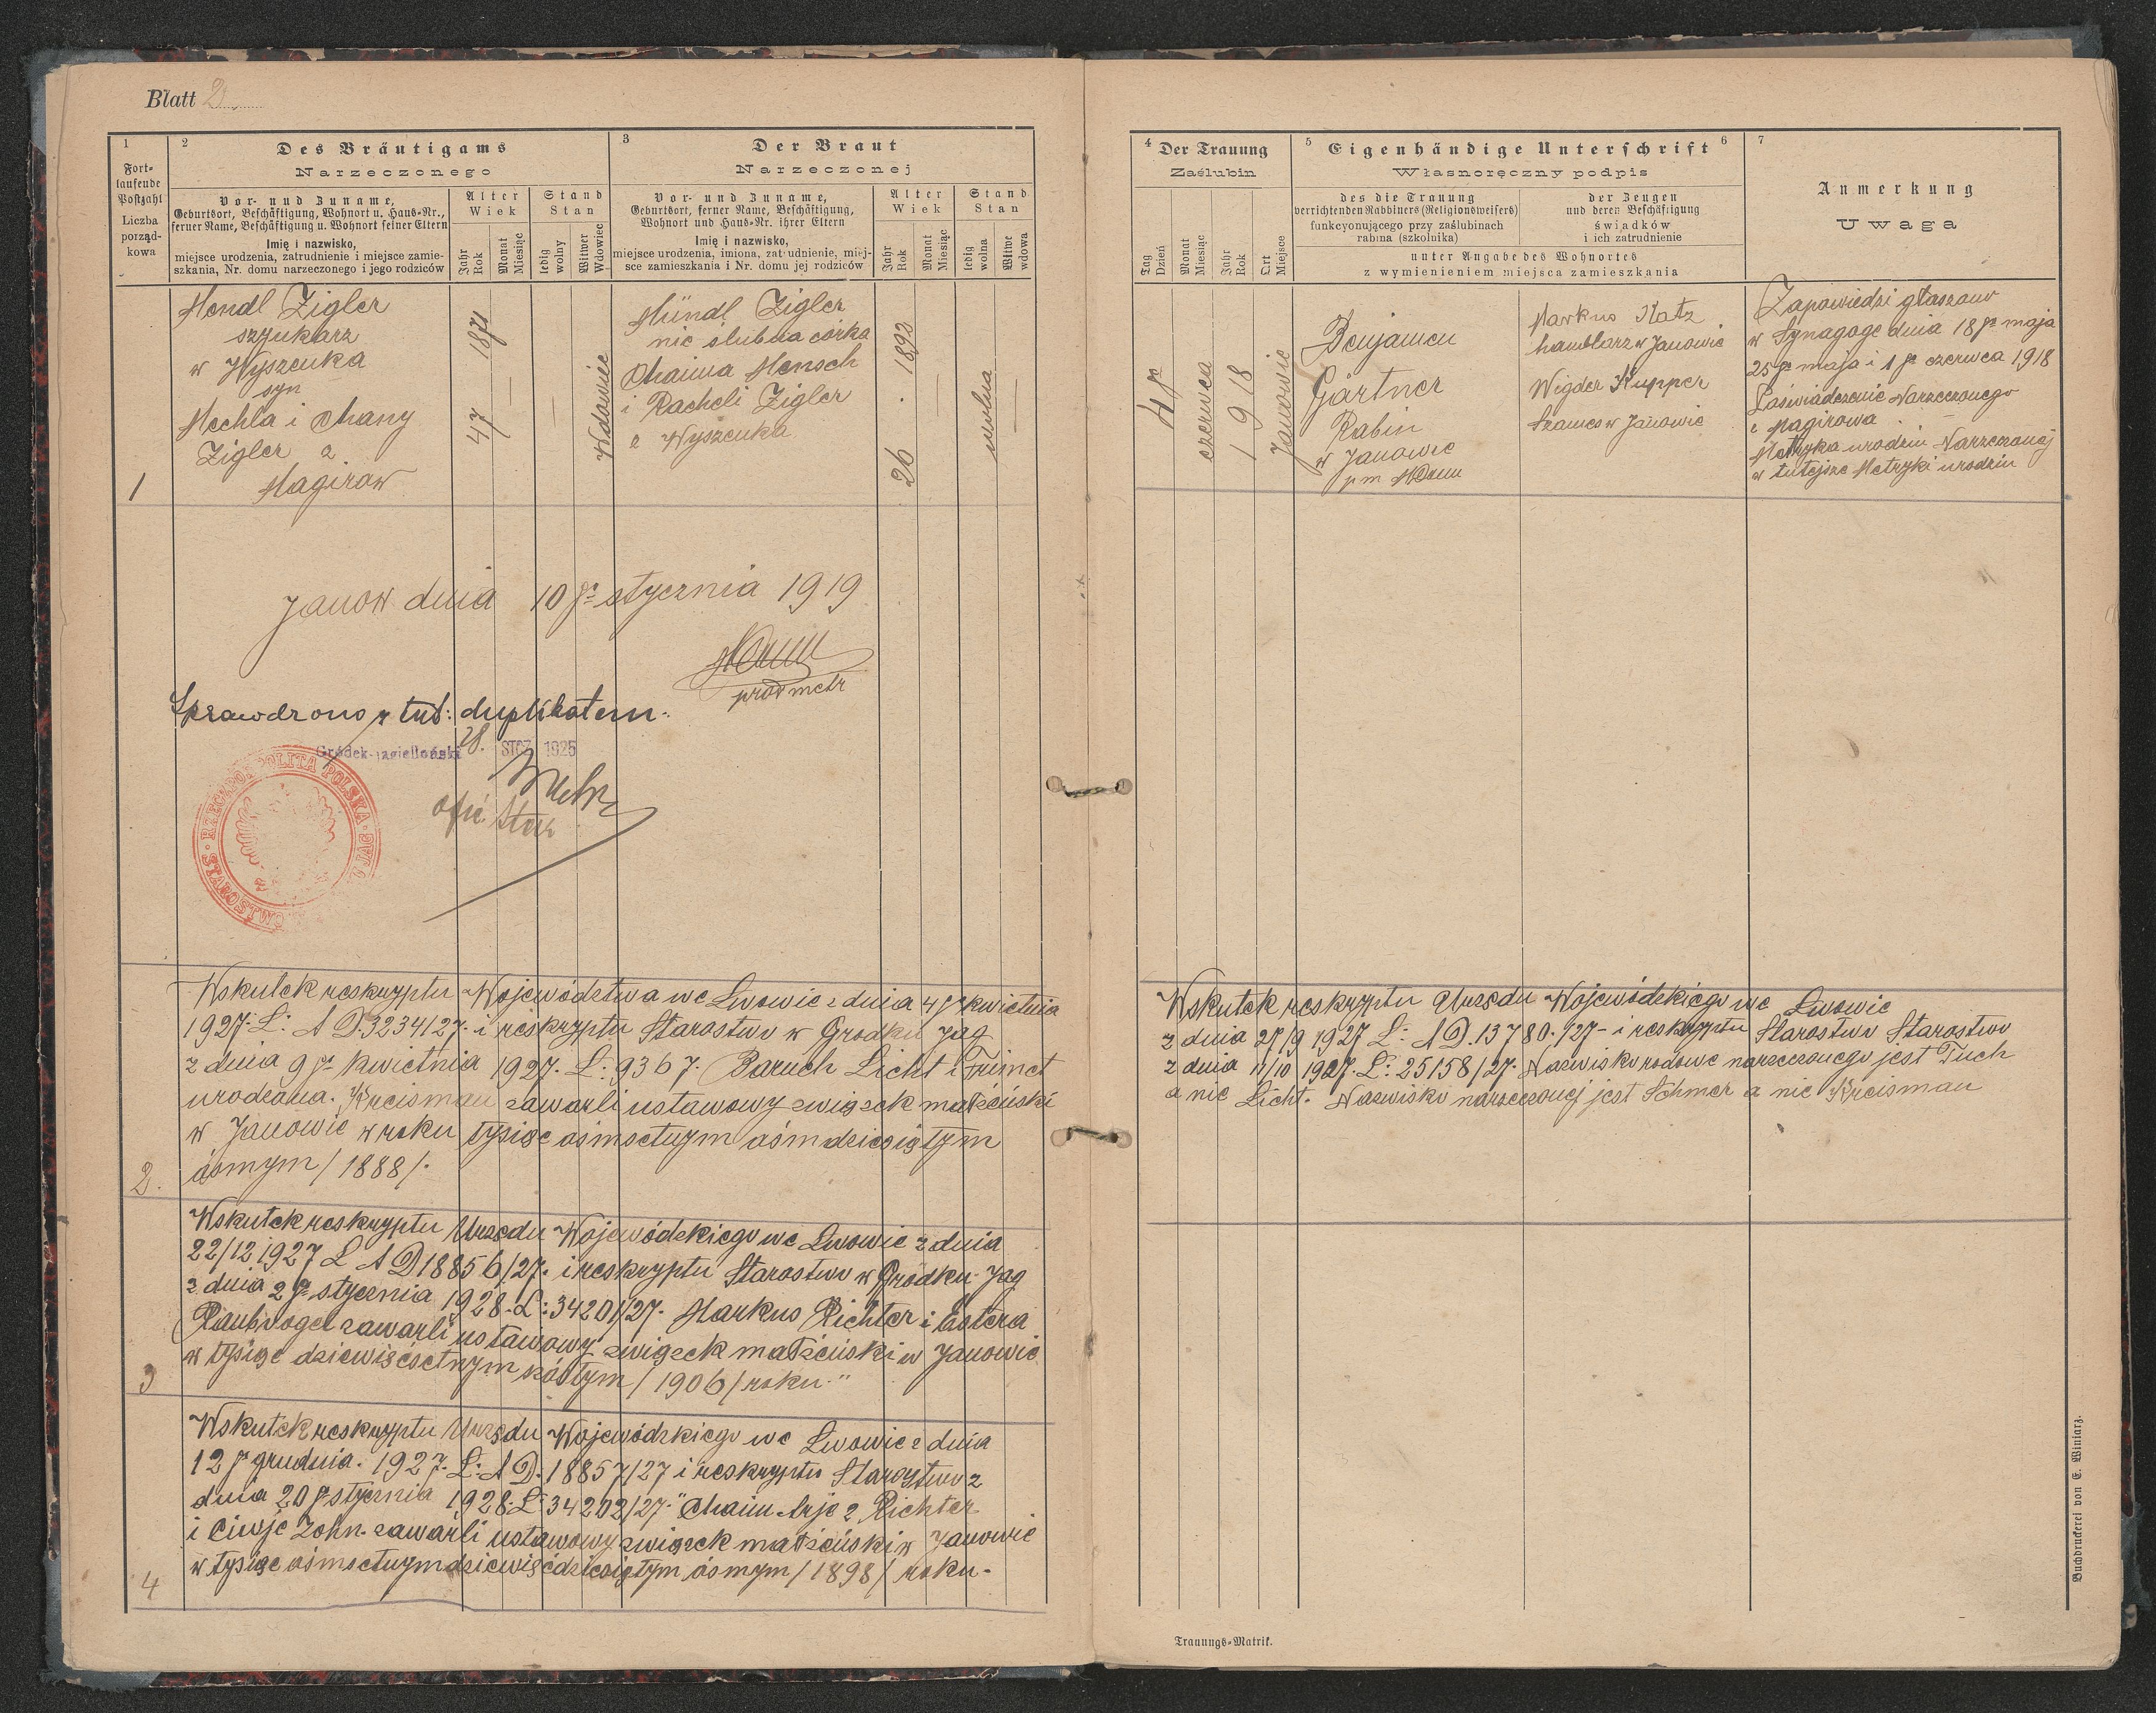 Blatt 2.
1
Fort-
laufende
Postzahl
Liczba
porząd-
kowa
2
Des Bräutigams
Narzeczonego
Vor- und Zuname,
Geburtsort, Beschäftigung, Wohnort u. Haus-Nr.,
ferner Name, Beschäftigung u. Wohnort seiner Eltern
Imię i nazwisko,
miejsce urodzenia, zatrudnienie i miejsce zamie-
szkania, Nr. domu narzeczonego i jego rodziców
Alter
Wiek
Jahr
Rok
Monat
Miesiąc
Stand
Stan
ledig
wolny
Witwer
Wdowiec
3
Der Braut
Narzeczonej
Vor- und Zuname,
Geburtsort, ferner Name, Beschäftigung,
Wohnort und Haus-Nr. ihrer Eltern
Imię i nazwisko,
miejsce urodzenia, imiona, zatrudnienie, miej-
sce zamieszkania i Nr. domu jej rodziców
Alter
Wiek
Jahr
Rok
Monat
Miesiąc
Stand
Stan
ledig
wolna
Witwe
wdowa
1
Mendl Zigler
szynkarz
w Wyszenka
syn
Mechla i Chany
Zigler z
Magirow
1871
47
Wdowiec
Mündl Zigler
nie ślubna córka
Chaima Mensch
i Racheli Zigler
z Wyszenka
1892
26
wolna
Janow dnia 10go stycznia 1919
prow metr
Sprawdzono z tut: duplikatem.
Gródek-Jagielloński 28. STCZ 1925
RZECZPOSPOLITA POLSKA
STAROSTWO
2.
Wskutek reskryptu Województwa we Lwowie z dnia 4go kwietnia
1927. L: A D.3234/27. i reskryptu Starostwo w Grodku Jag
z dnia 9go kwietnia 1927. L: 9367. Baruch Licht i Frimet
urodzana. Kreisman zawarli ustawowy związek małżeński
w Janowie w roku tysiąc ośmsetnym ośmdziesiątym
ósmym /1888/.
3
Wskutek reskryptu Urzędu Wojewódzkiego we Lwowie z dnia
22/12 1927 L A D 18856/27. i reskryptu Starostwo w Gródku Jag
z dnia 2go stycznia 1928. L: 34201/27. Markus Richter i Estera
Raubvogel zawarli ustawowy związek małżeński w Janowie
w tysiąc dziewięćsetnym szóstym /1906/ roku."
4
Wskutek reskryptu Urzędu Wojewódzkiego we Lwowie z dnia
12go grudnia. 1927. L: A D. 18857/27 i reskryptu Starostwo z
dnia 20go stycznia 1928. L: 34202/27." Chaim Arje 2 Richter
i Ciwje Zohn zawarli ustawowy związek małżeński w Janowie
w tysiąc ośmsetnym dziewięćdziesiątym ósmym /1898/ roku.
4
Der Trauung
Zaślubin
Tag
Dzień
Monat
Miesiąc
Jahr
Rok
Ort
Miejsce
5
Eigenhändige Unterschrift
6
Własnoręczny podpis
des die Trauung
verrichtenden Rabbiners (Religionsweisers)
funkcyonującego przy zaślubinach
rabina (szkolnika)
der Zeugen
und deren Beschäftigung
świadków
i ich zatrudnienie
unter Angabe des Wohnortes
z wymienieniem miejsca zamieszkania
7
Anmerkung
Uwaga
4go
czerwca
1918
Janowie
Benjamen
Gärtner
Rabin
w Janowie
Markus Katz
handlarz w Janowie
Wigder Kupper
Szames w Janowie
Zapowiedzi głaszano
w Synagoge dnia 18go maja
25go maja i 1go czerwca 1918
Zaświadczenie Narzeczonego
z Magirowa
Metryka urodzin Narzeczonej
w tutejsze Metryki urodzin
Wskutek reskryptu Urzędu Wojewódzkiego we Lwowie
z dnia 27/9 1927 L: A D. 13780./27- i reskryptu Starostwo Starostwo
z dnia 17/10 1927. L: 25158/27. Nazwisko rodowe narzeczonego jest Tuch
a nie Licht. Nazwisko narzeczonej jest Schmer a nie Kreisman
Trauungs-Matrik.
Buchdruckerei von E. Winiarz.